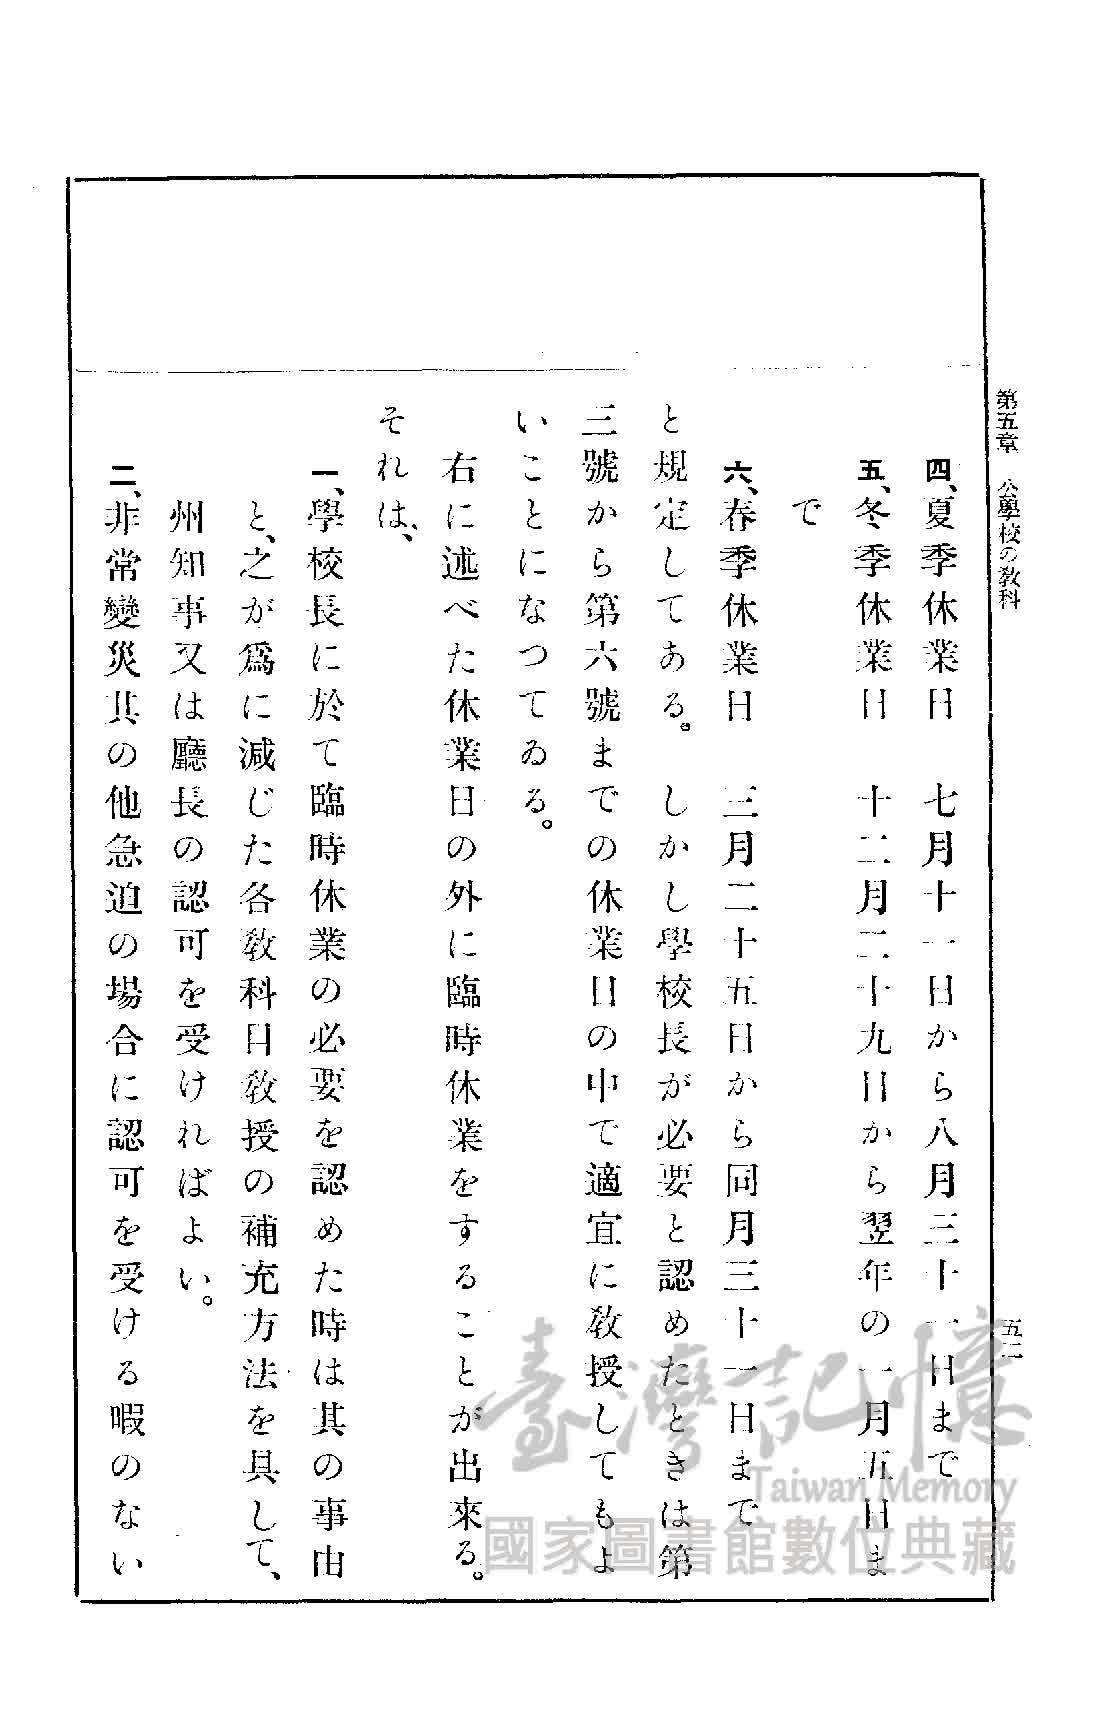 第五章　公學校の教科
五二
四、夏季休業日　七月十一日から八月三十一日まで
五、冬季休業日　十二月二十九日から翌年の一月五日ま
で
六、春季休業日　三月二十五日から同月三十一日まで
と規定してある。しかし學校長が必要と認めたときは第
三號から第六號までの休業日の中で適宜に教授してもよ
いことになつてゐる。
右に述べた休業日の外に臨時休業をすることが出來る。
それは、
一、學校長に於て臨時休業の必要を認めた時は其の事由
と、之が爲に減じた各教科目教授の補充方法を具して、
州知事又は廳長の認可を受ければよい。
二、非常變災其の他急迫の場合に認可を受ける暇のない
臺灣記憶
Taiwan Memory
國家圖書館數位典藏